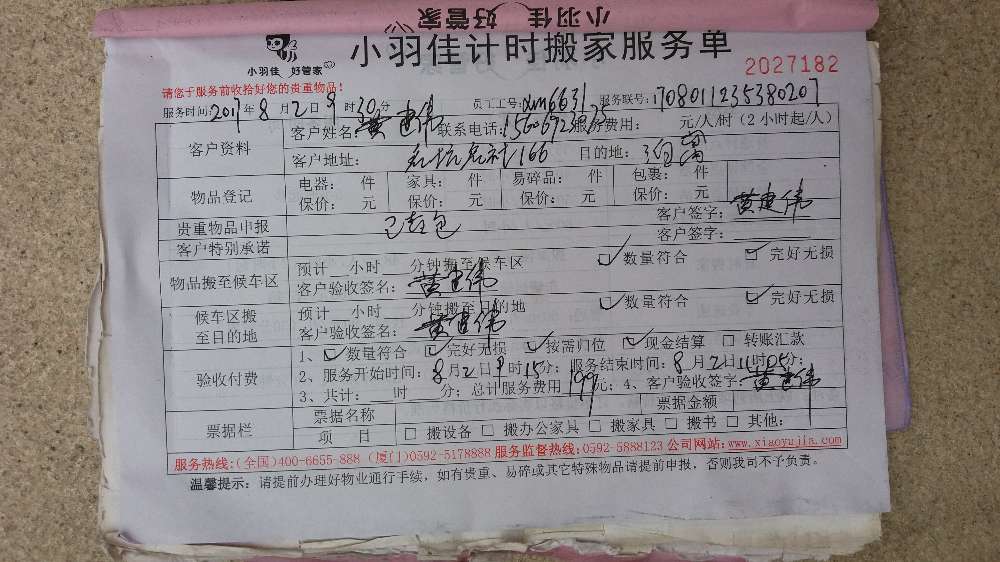 小羽佳 好管家
小羽佳 好管家
小羽佳计时搬家服务单
2027182
请您于服务前收拾好您的贵重物品!
服务时间:2017年8月2日9时30分 员工工号:xm6631 服务联号:1708011235380207
客户资料
客户姓名:黄建伟 联系电话: 服务费用: 元/人/时(2小时起/人)
客户地址: 166 目的地:
物品登记
电器: 件 家具: 件 易碎品: 件 包裹: 件
保价: 元 保价: 元 保价: 元 保价: 元
贵重物品申报 已打包 客户签字:黄建伟
客户特别承诺 客户签字:
物品搬至候车区
预计__小时__分钟搬至候车区 ☑数量符合 ☑完好无损
客户验收签名:黄建伟
候车区搬至目的地
预计__小时__分钟搬至目的地 ☑数量符合 ☑完好无损
客户验收签名:黄建伟
验收付费
1、☑数量符合 ☑完好无损 ☑按需归位 ☑现金结算 □转账汇款
2、服务开始时间:8月2日9时15分; 服务结束时间:8月2日11时05分;
3、共计:__时__分; 总计服务费用199元; 4、客户验收签字:黄建伟
票据栏
票据名称 票据金额
项 目 □搬设备 □搬办公家具 □搬家具 □搬书 □其他:
服务热线:(全国)400-6655-888 (厦门)0592-5178888 服务监督热线:0592-5888123 公司网站:www.xiaoyujia.com
温馨提示: 请提前办理好物业通行手续,如有贵重、易碎或其它特殊物品请提前申报,否则我司不予负责。